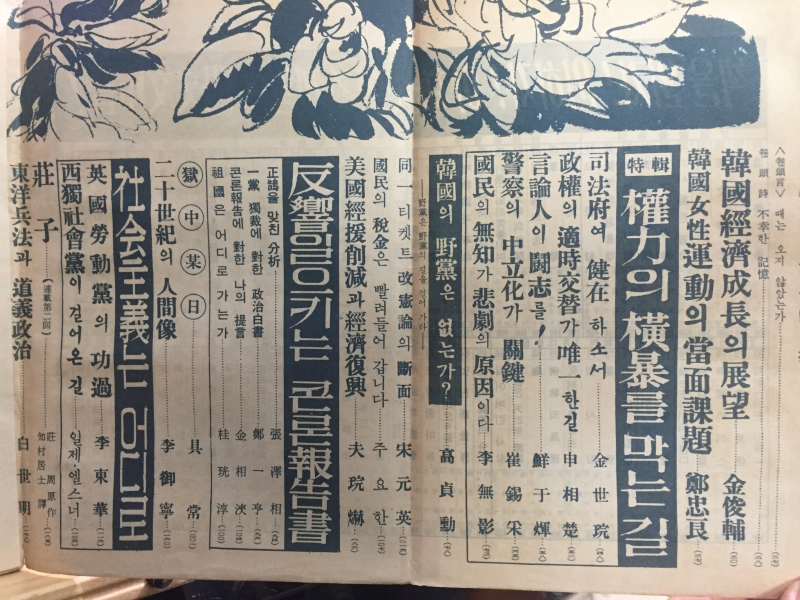 <卷頭言> 때는 오지 않았는가
卷頭詩 不幸한 記憶
韓國經濟成長의 展望 金俊輔
韓國女性運動의 當面課題 鄭忠良
特輯 權力의 橫暴를 막는 길
司法府여 健在하소서 金世玩
政權의 適時交替가 唯一한길 申相楚
言論人이 鬪志를! 鮮于煇
警察의 中立化가 關鍵 崔錫采
國民의 無知가 悲劇의 原因이다 李無影
韓國의 野黨은 없는가? 高貞勳
野黨은 野黨의 길을 걸어 가라
同一티켓트 改憲論의 斷面 宋元英
國民의 稅金은 빨려들어 갑니다 주요한
美國經援削減과 經濟復興 夫琓爀
反響일으키는 콘론報告書
正鵠을 맞친 分析 張澤相
一黨獨裁에 대한 政治白書 鄭一亨
콘론報告에 對한 나의 提言 金相浹
祖國은 어디로 가는가 桂珖淳
獄中某日 具常
二十世紀의 人間像 李御寧
社会主義는 어디로
英國勞動黨의 功過 李東華
西獨社會黨이 걸어온 길 일제·엘스너
莊子 (連載第二回) 莊周原作 知村居士譯
東洋兵法과 道義政治 白世明